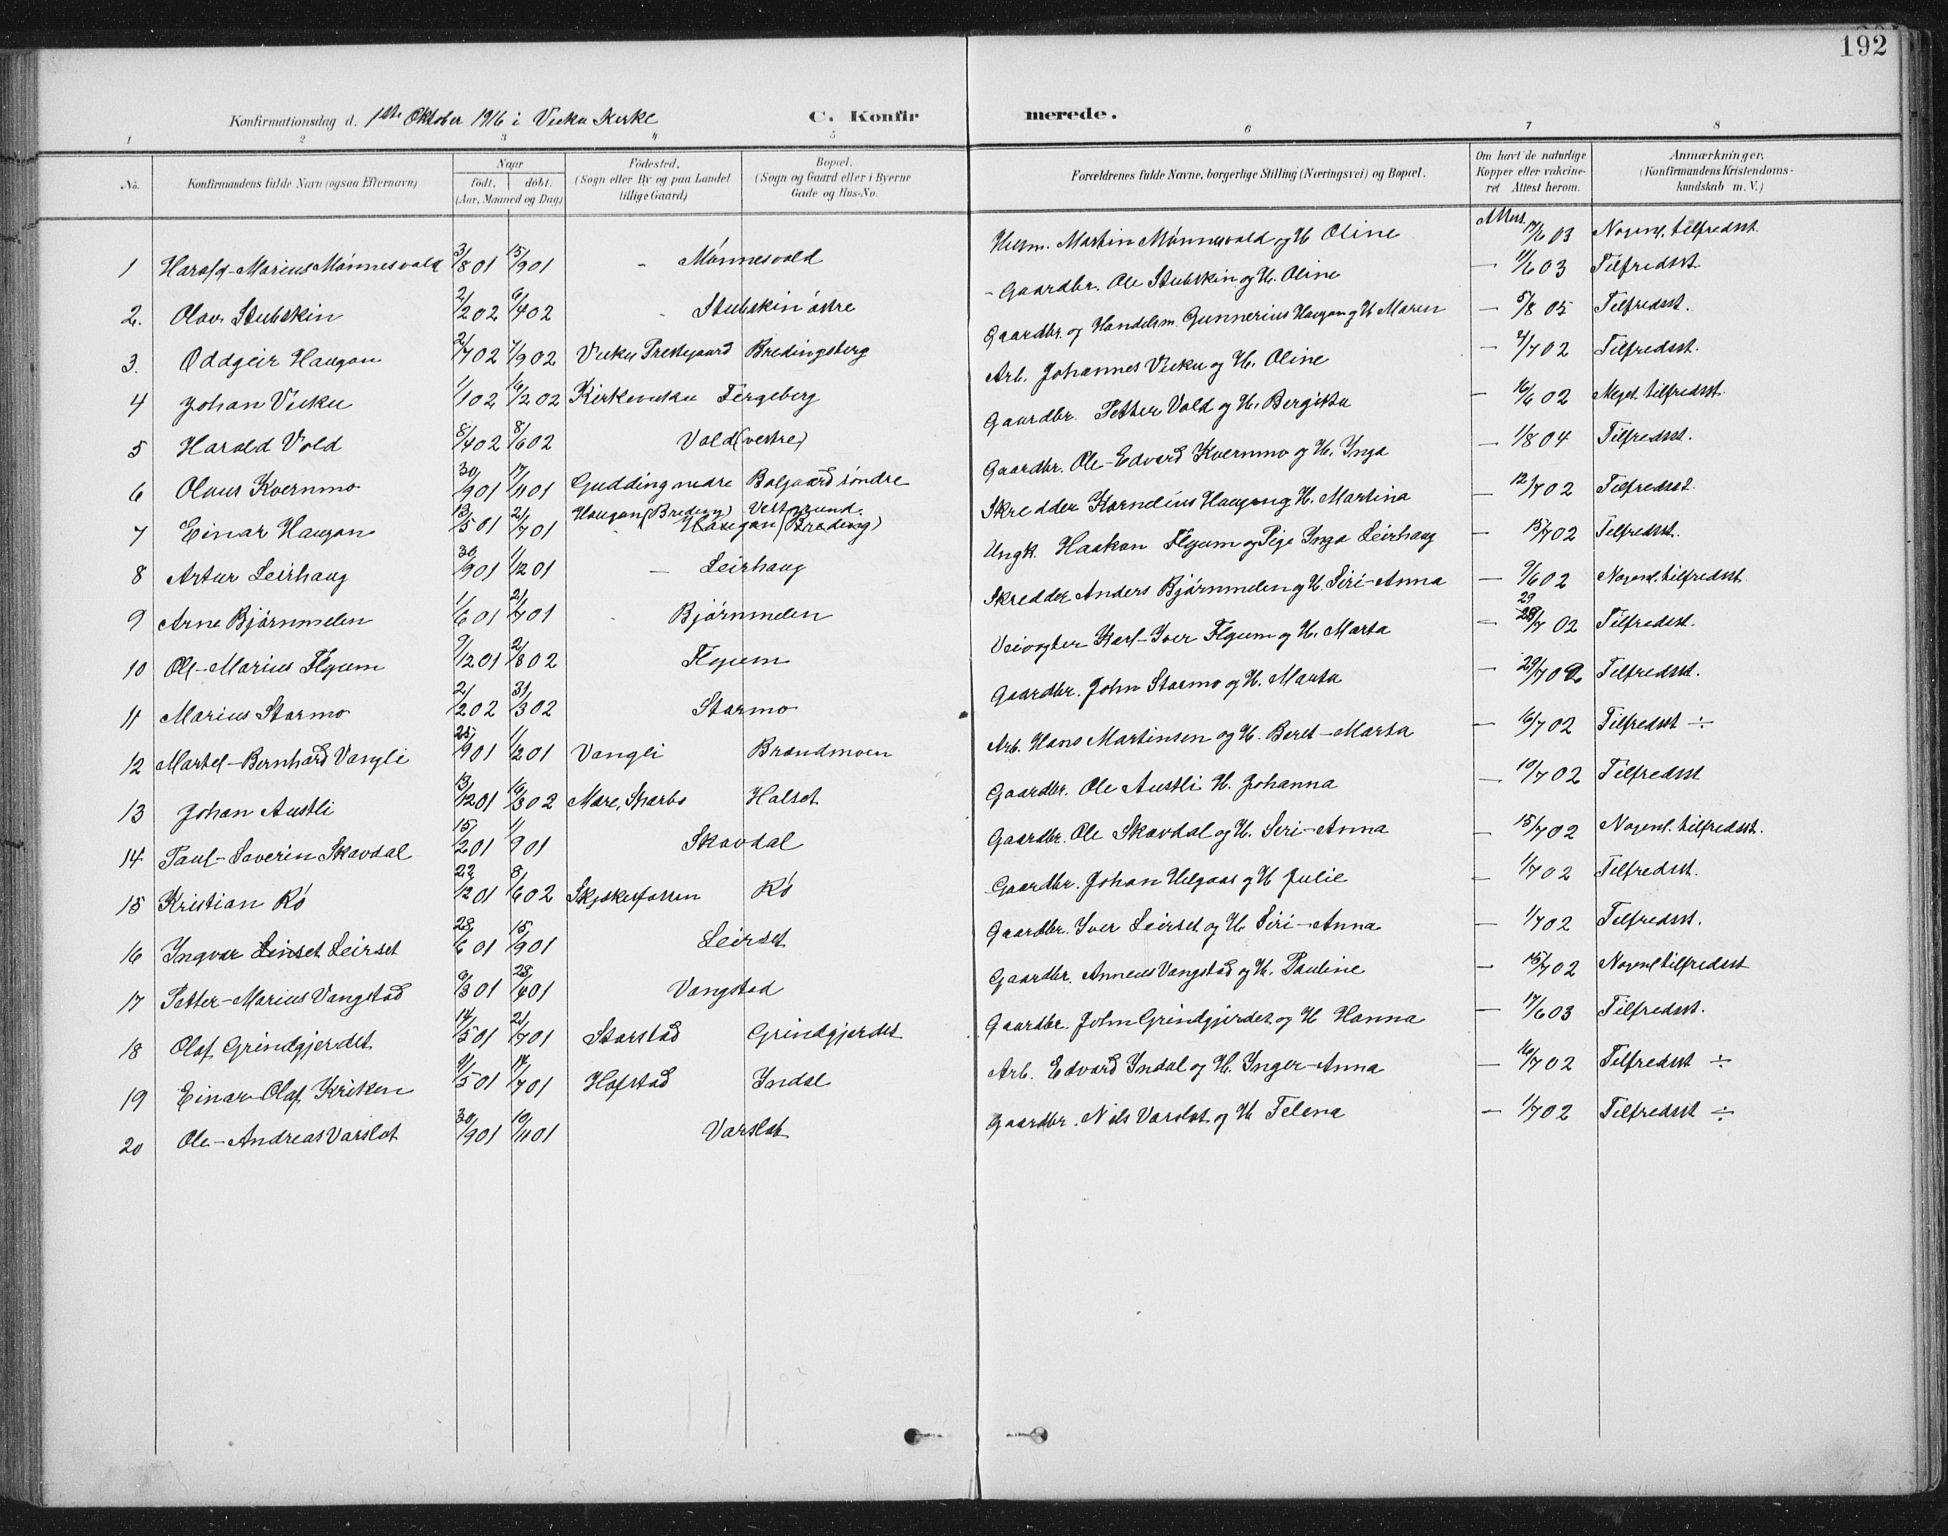 192
Konfirmationsdag d. 1ste Oktober 1916 i Vuku Kirke C. Konfirmerede.
1 2 3 4 5 6 7 8
No. Konfirmandens fulde Navn (ogsaa Efternavn) Naar født, døbt. (Aar, Maaned og Dag) Fødested. (Sogn eller By og paa Landet tillige Gaard) Bopæl. (Sogn og Gaard eller i Byerne Gade og Hus-No. Forældrenes fulde Navne, borgerlige Stilling (Næringsvei) og Bopæl. Om havt de naturlige Kopper eller vakcineret Attest herom. Anmærkninger. (Konfirmandens Kristendomskundskab m. V.)
1 Harald-Marius Mønnesvold 3/8 01 15/9 01 " Mønnesvold Husm. Martin Mønnesvold og H. Oline Attest 17/6 03 Nogenl. tilfredsst.
2. Olav Stubskin 2/2 02 6/4 02 " Stubskin østre Gaardbr. Ole Stubskin og H. Oline — 11/6 03 Tilfredsst.
3. Oddgeir Haugan 2/7 02 7/9 02 Vuku Prestegaard Bredingsberg Gaardbr. og Handelsm. Gunnerius Haugan og H. Maren — 5/8 05 Tilfredsst.
4 Johan Vuku 1/1 02 16/2 02 Kirkevuku Fergeberg Arb. Johannes Vuku og H. Oline — 4/7 02 Tilfredsst.
5 Harald Vold 8/4 02 8/6 02 Vold (vestre) Gaardbr. Petter Vold og H. Bergitta — 16/6 02 Meget tilfredsst.
6 Olaus Kvernmo 30/9 01 17/11 01 Gudding nedre Balgaard søndre Gaardbr. Ole-Edvard Kvernmo og H. Inga — 1/8 04 Tilfredsst.
7 Einar Haugan 13/5 01 21/7 01 Haugan (Breding) Vestgrund. Haugan (Breding) Skredder Kornelius Haugan og H. Martina — 12/7 02 Tilfredsst.
8 Artur Leirhaug 30/9 01 1/12 01 — Leirhaug Ungk. Haakon Flyum og Pige Inga Leirhaug — 15/7 02 Tilfredsst.
9 Arne Bjørnmelen 1/6 01 21/7 01 " Bjørnmelen Skredder Anders Bjørnmelen og H. Siri-Anna — 9/6 02 Nogenl. tilfredsst.
10 Ole-Marius Flyum 9/12 01 2/3 02 Flyum Veivogter Karl-Iver Flyum og H. Marta — 29/7 02 Tilfredsst.
11 Marius Starmo 2/2 02 31/3 02 Starmo Gaardbr. John Starmo og H. Marta — 29/7 02 Tilfredsst.
12 Martel-Bernhard Vangli 25/9 01 1/12 01 Vangli Brandmoen Arb. Hans Martinsen og H. Beret-Marta — 16/7 02 Tilfredsst ÷
13 Johan Austli 13/12 01 16/3 02 Mære, Sparbo Halset Gaardbr. Ole Austli H. Johanna — 10/7 02 Tilfredsst
14 Paul-Severin Skavdal 15/2 01 1/9 01 Skavdal Gaardbr. Ole Skavdal og H. Siri-Anna — 15/7 02 Nogenl. tilfredsst.
15 Kristian Rø 22/12 01 8/6 02 Skjækerfossen Rø Gaardbr. Johan Helgaas og H Julie — 1/7 02 Tilfredsst.
16 Ingvar Leirset 28/6 01 15/9 01 Leirset Gaardbr. Iver Leirset og H. Siri-Anna — 1/7 02 Tilfredsst.
17 Petter-Marius Vangstad 9/3 01 28/4 01 Vangstad Gaardbr. Anneus Vangstad og H. Pauline — 15/7 02 Nogenl tilfredsst
18 Olaf Grindgjerdet 14/5 01 21/7 01 Storstad Grindgjerdet Gaardbr. John Grindgjerdet og H Hanna — 17/6 03 Tilfredsst.
19 Einar-Olaf Kriken 9/5 01 14/7 01 Hofstad Yndal Arb. Edvard Yndal og H. Inger-Anna — 16/7 02 Tilfredsst ÷
20 Ole-Andreas Varslot 30/9 01 10/11 01 Varslot Gaardbr. Nils Varslot og H Telena — 1/7 02 Tilfredsst ÷